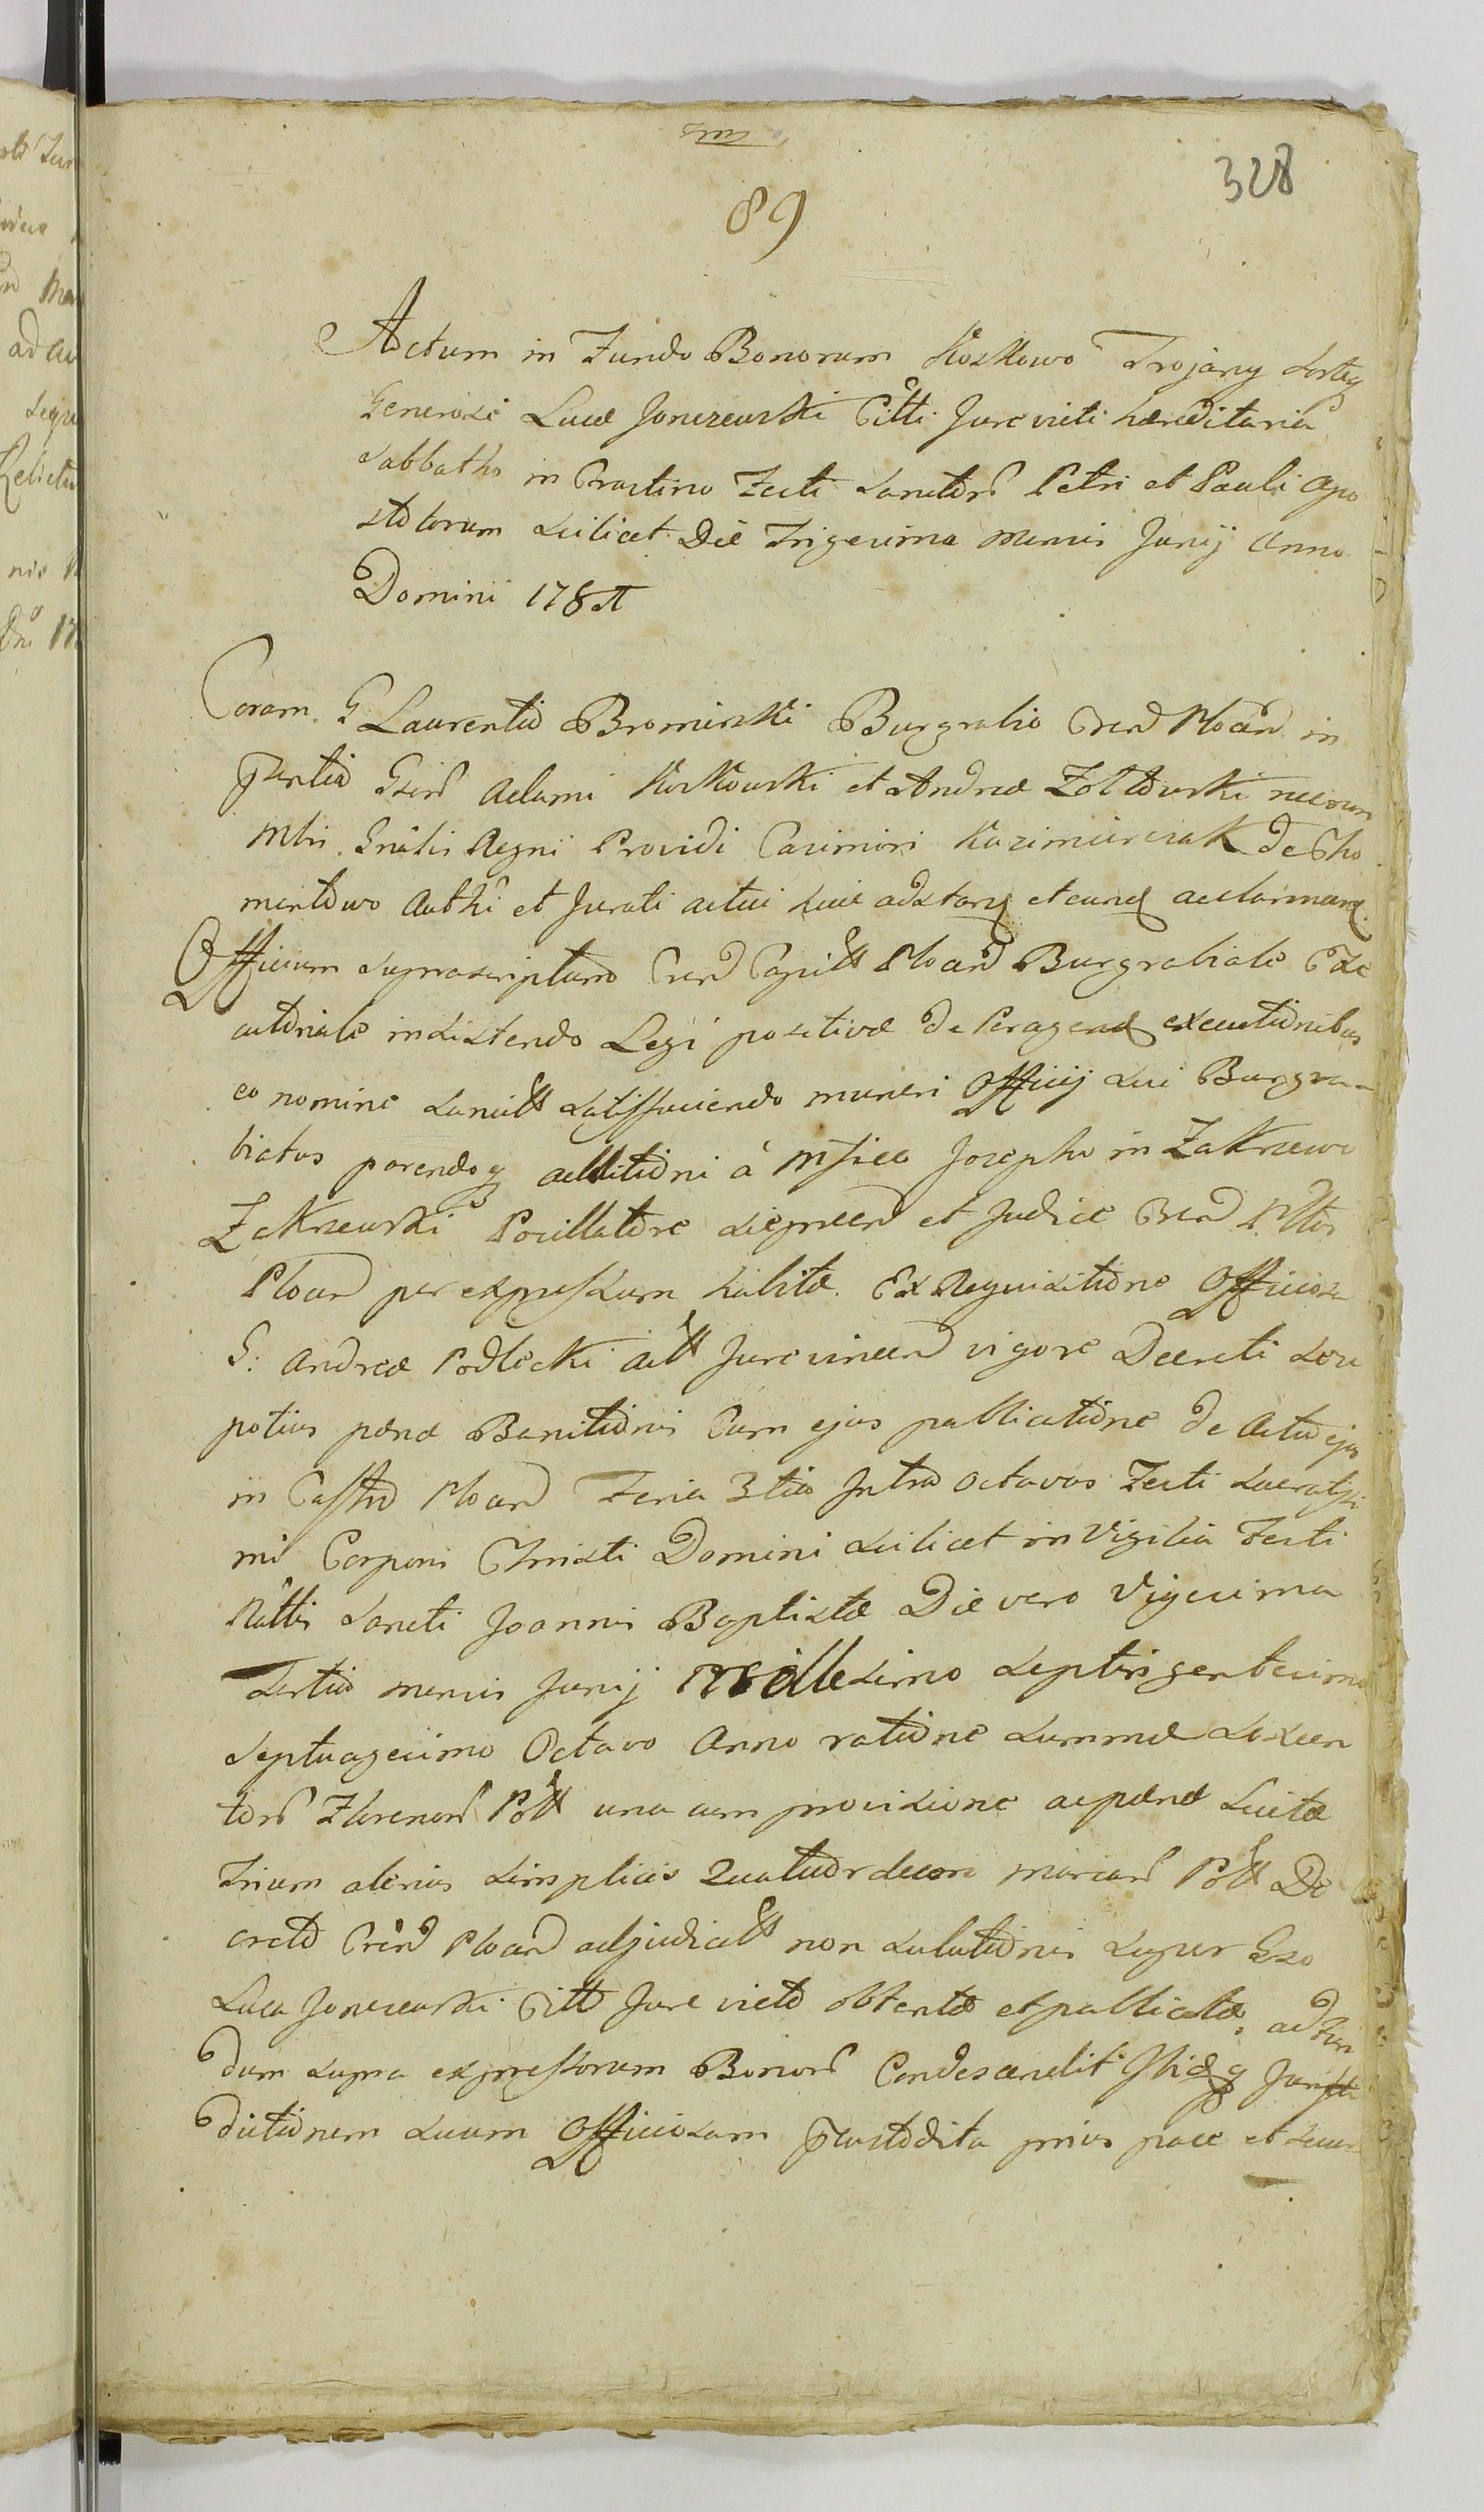 89
328
Actum in Fundo Bonorum Koskowo Trojany Sortis
Generosi Lucæ Jonczewski Citti Jurevicti hæreditaria
Sabbatho in Crastino Festi Sanctor Petri et Pauli Apo
stolorum scilicet Die Trigesima Mensis Junij Anno
Domini
Coram G Laurentio Brominski Burgrabio Cren Plocen in
Pŋtia Gser Adami Koskowski et Andreæ Zołtowski necnon
Mtri Gnalis Regni Providi Casimiri Kazimierczak de Cho
mentowo Authi et Jurati actui huic adstan et eund adarmand
Officium suprascriptum Cren Capitt Plocen Burgrabiale Exe
cutoriale insistendo Legi positivæ de Peragend executionibus
eo nomine sancitt satisfaciendo muneri Officij sui Burgra-
biatus parendoq additioni à Mfico Josepho in Zakrzewo
Zakrzewski Pocillatore Sieprcen et Judice Cren
Plocen per expressum habitæ. Ex Requisitione Officiosa
G: Andreæ Podlecki Actt Jurevincen vigore Decreti seu
potius pænæ Banitionis Cum ejus publicatione de Actu ejus
in Castro Plocen Feria 3tia Intra Octavas Festi Sacratissi
mi Corporis Christi Domini scilicet in Vigilia Festi
Natttis Sancti Joannis Baptistæ Die vero Vigesima
Tertia mensis Junij Millesimo septingentesimo
Septuagesimo Octavo Anno ratione summæ Sexcen
tor Florenor Poll una cum provisione ac pænæ Luitæ
Trium alterius simplicis Quatuordecem marcar Poll De
creto Cren Plocen adjudicatt non solutionis super Gso
Luca Jonczewski Citto Jure victo obtentæ et publicatæ, ad Fun
dum supra expressorum Bonor Condescendit Ibidq Juris
dictionem suam Officiosam Pcustodita prius pace et secur